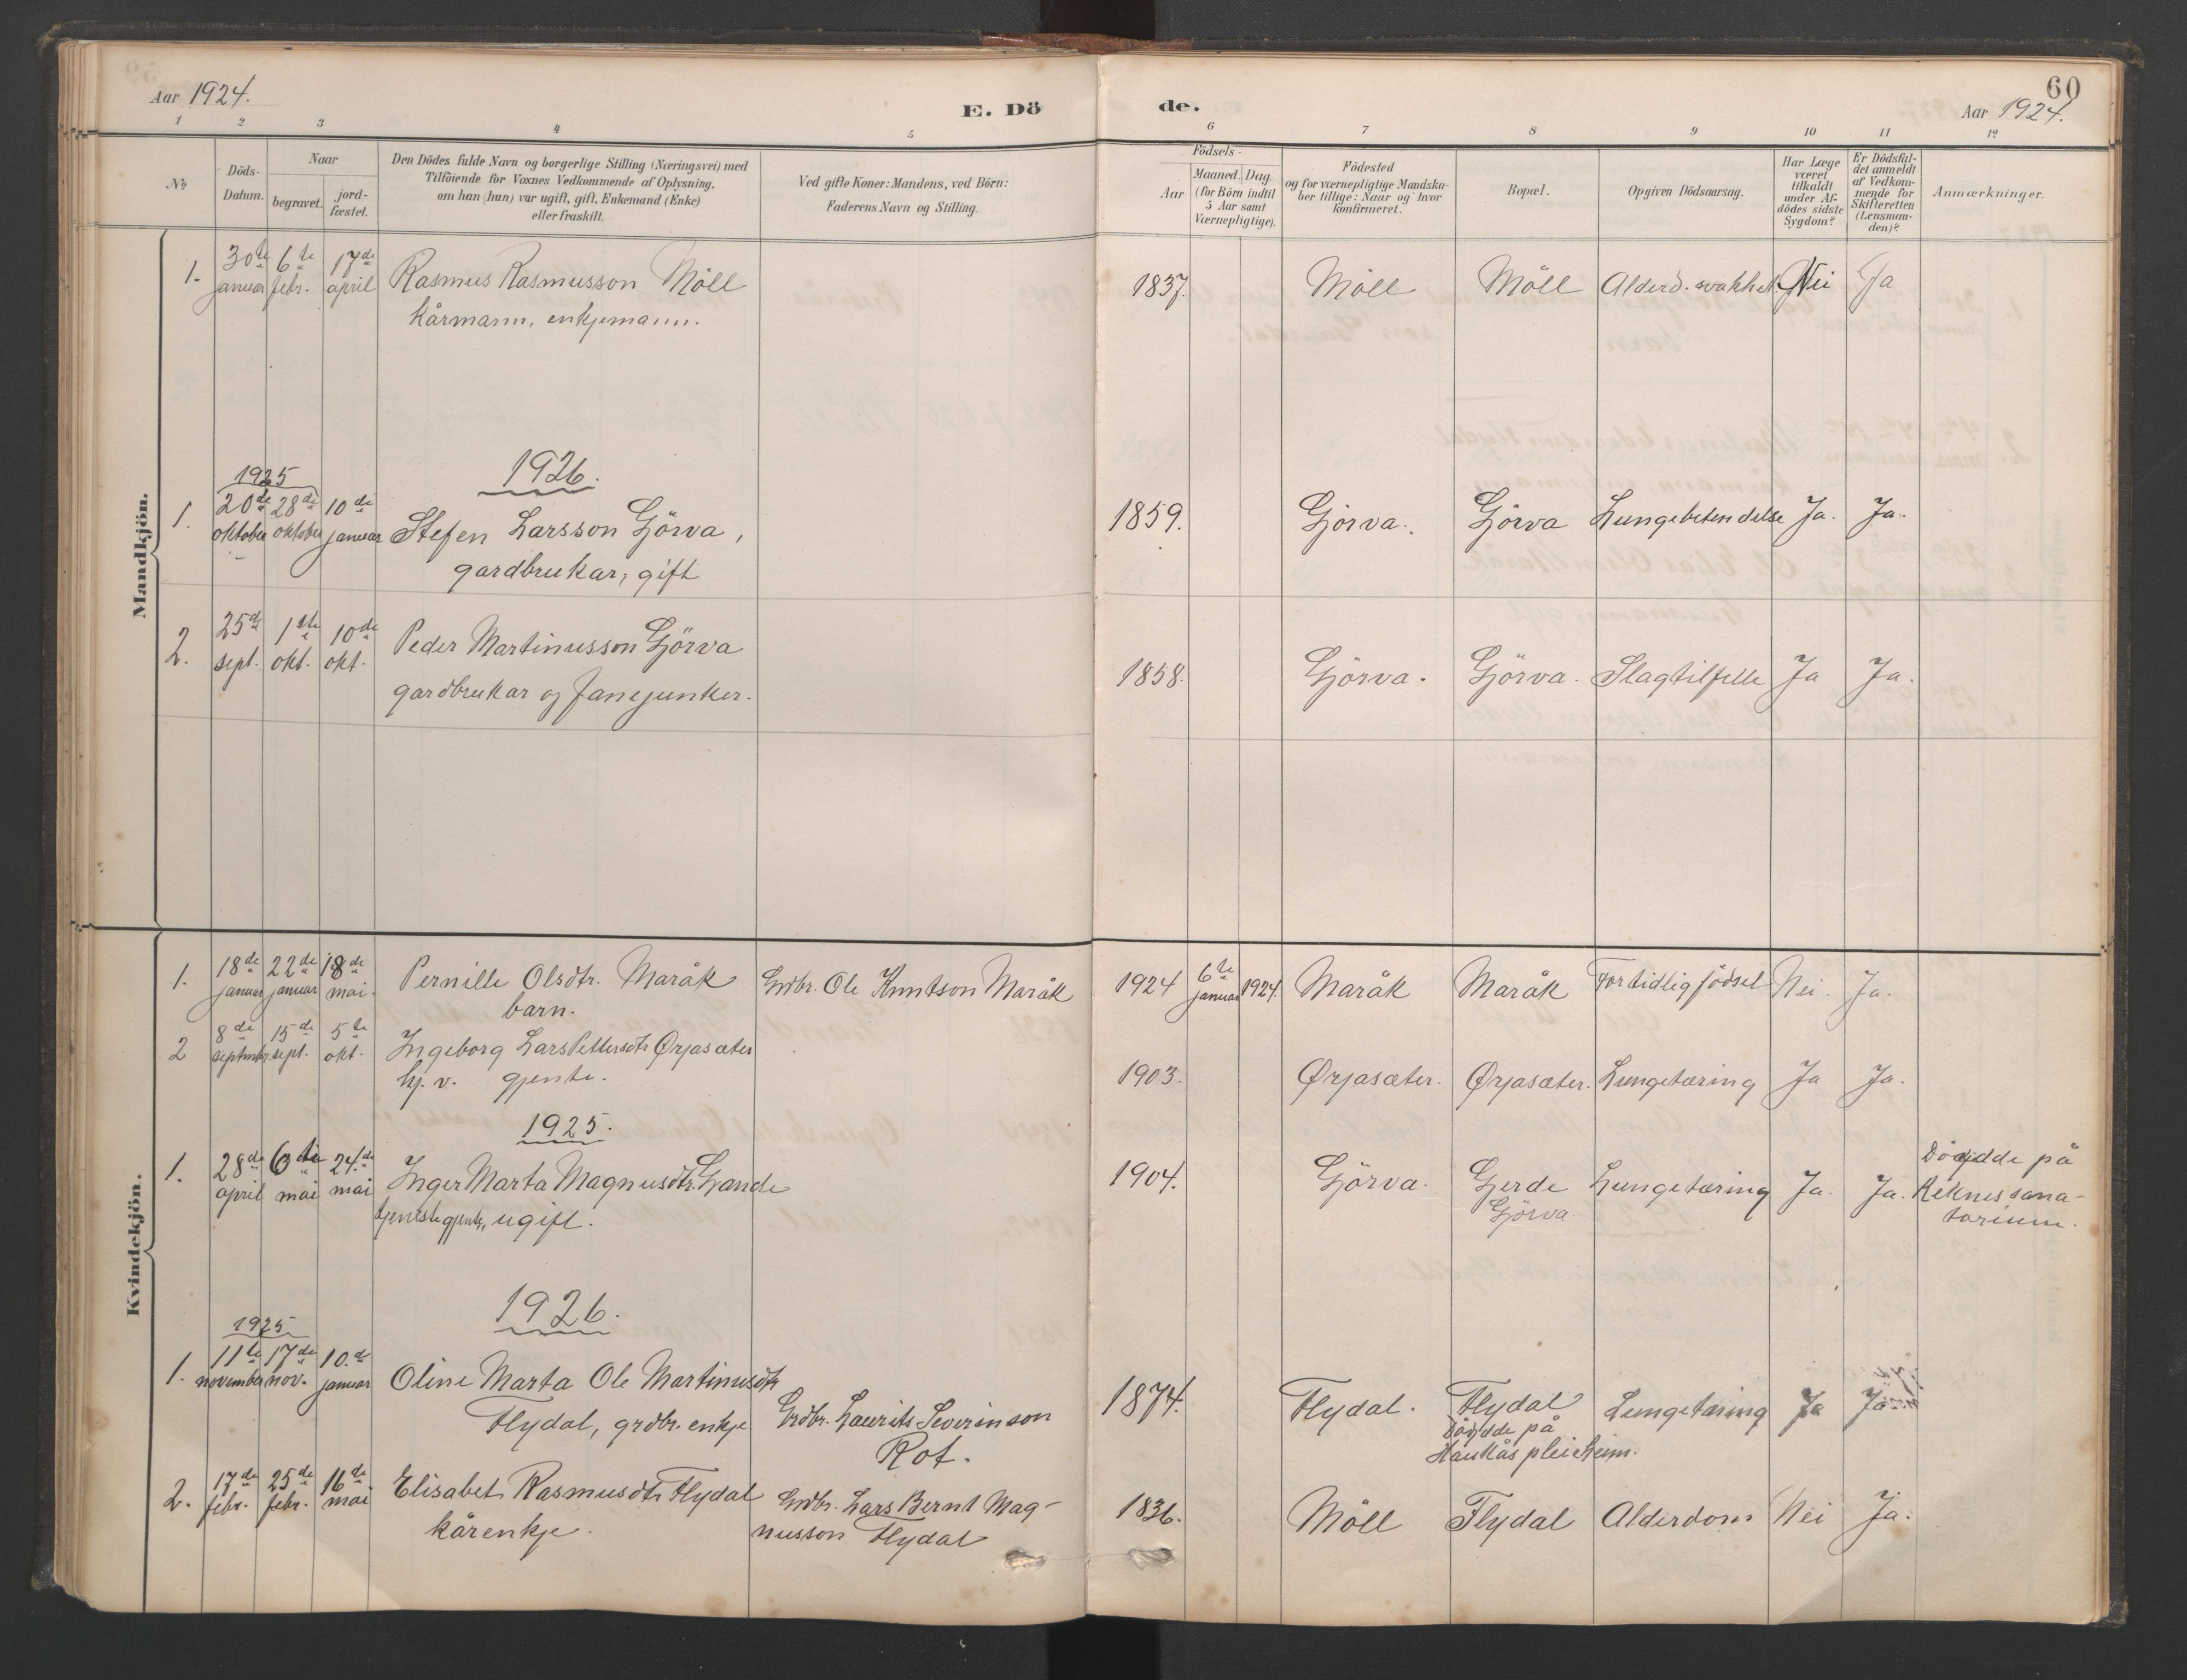 Aar 1924.
E. Dö
de.
60
Aar 1924.
1 2 3 4 5 6 7 8 9 10 11 12
No
Döds-
Datum.
Naar
begravet.
jord-
fæstet.
Den Dödes fulde Navn og borgerlige Stilling (Næringsvei) med
Tilföiende for Voxnes Vedkommende af Oplysning,
om han (hun) var ugift, gift, Enkemand (Enke)
eller fraskilt.
Ved gifte Koner: Mandens, ved Börn:
Faderens Navn og Stilling.
Födsels-
Aar
Maaned. Dag.
(for Börn indtil
5 Aar samt
Værnepligtige).
Födested
og for værnepligtige Mandska-
ber tillige: Naar og hvor
konfirmeret.
Bopæl.
Opgiven Dödsaarsag.
Har Læge
været
tilkaldt
under Af-
dödes sidste
Sygdom?
Er Dödsfal-
det anmeldt
af Vedkom-
mende for
Skifteretten
(Lensman-
den)?
Anmærkninger.
Mandkjön.
1. 30te januar 6te febr. 17de april Rasmus Rasmusson Möll 1837. Möll Möll Alderd. svakhet Nei Ja
kårmann, enkjemann.
1926.
1925
1. 20de oktober 28de oktober 10de januar Stefen Larsson Gjörva, 1859. Gjörva. Gjörva Lungebetendelse Ja. Ja.
gardbrukar, gift
2. 25de sept. 1ste okt. 10de okt. Peder Martinusson Gjörva 1858. Gjörva. Gjörva. Slagtilfelle Ja Ja.
gardbrukar og fanejunker.
Kvindekjön.
1. 18de januar 22de januar 18de mai. Pernille Olsdtr. Maråk Grdbr. Ole Knutson Maråk 1924 6te januar 1924. Maråk Maråk For tidlig födsel Nei. Ja.
barn.
2 8de septmbr. 15de sept. 5te okt. Ingeborg Lars Pettersdtr Ørjasæter 1903. Ørjasæter. Ørjasæter. Lungetæring Ja Ja.
hj. v. gjente.
1925.
1. 28de april 6te mai 24.de mai Inger Marta Magnusdtr. Gjerde 1904. Gjörva. Gjerde Lungetæring Ja. Ja. Döydde på
Gjörva. Reknes sana-
tjenestegjente, ugift. torium.
1926.
1925
1. 11te november 17de nov. 10.de januar Oline Marta Ole Martinusdtr 1874. Flydal. Flydal Lungetæring Ja Ja.
Flydal, grdbr. enkje Grdbr. Laurits Severinson
Rot.
Döydde på
Haukås pleieheim.
2. 17de febr. 25de febr. 16de mai Elisabet Rasmusdtr Flydal Grdbr. Lars Bernt Mag- 1836. Möll Flydal Alderdom Nei Ja.
kårenkje. nusson Flydal